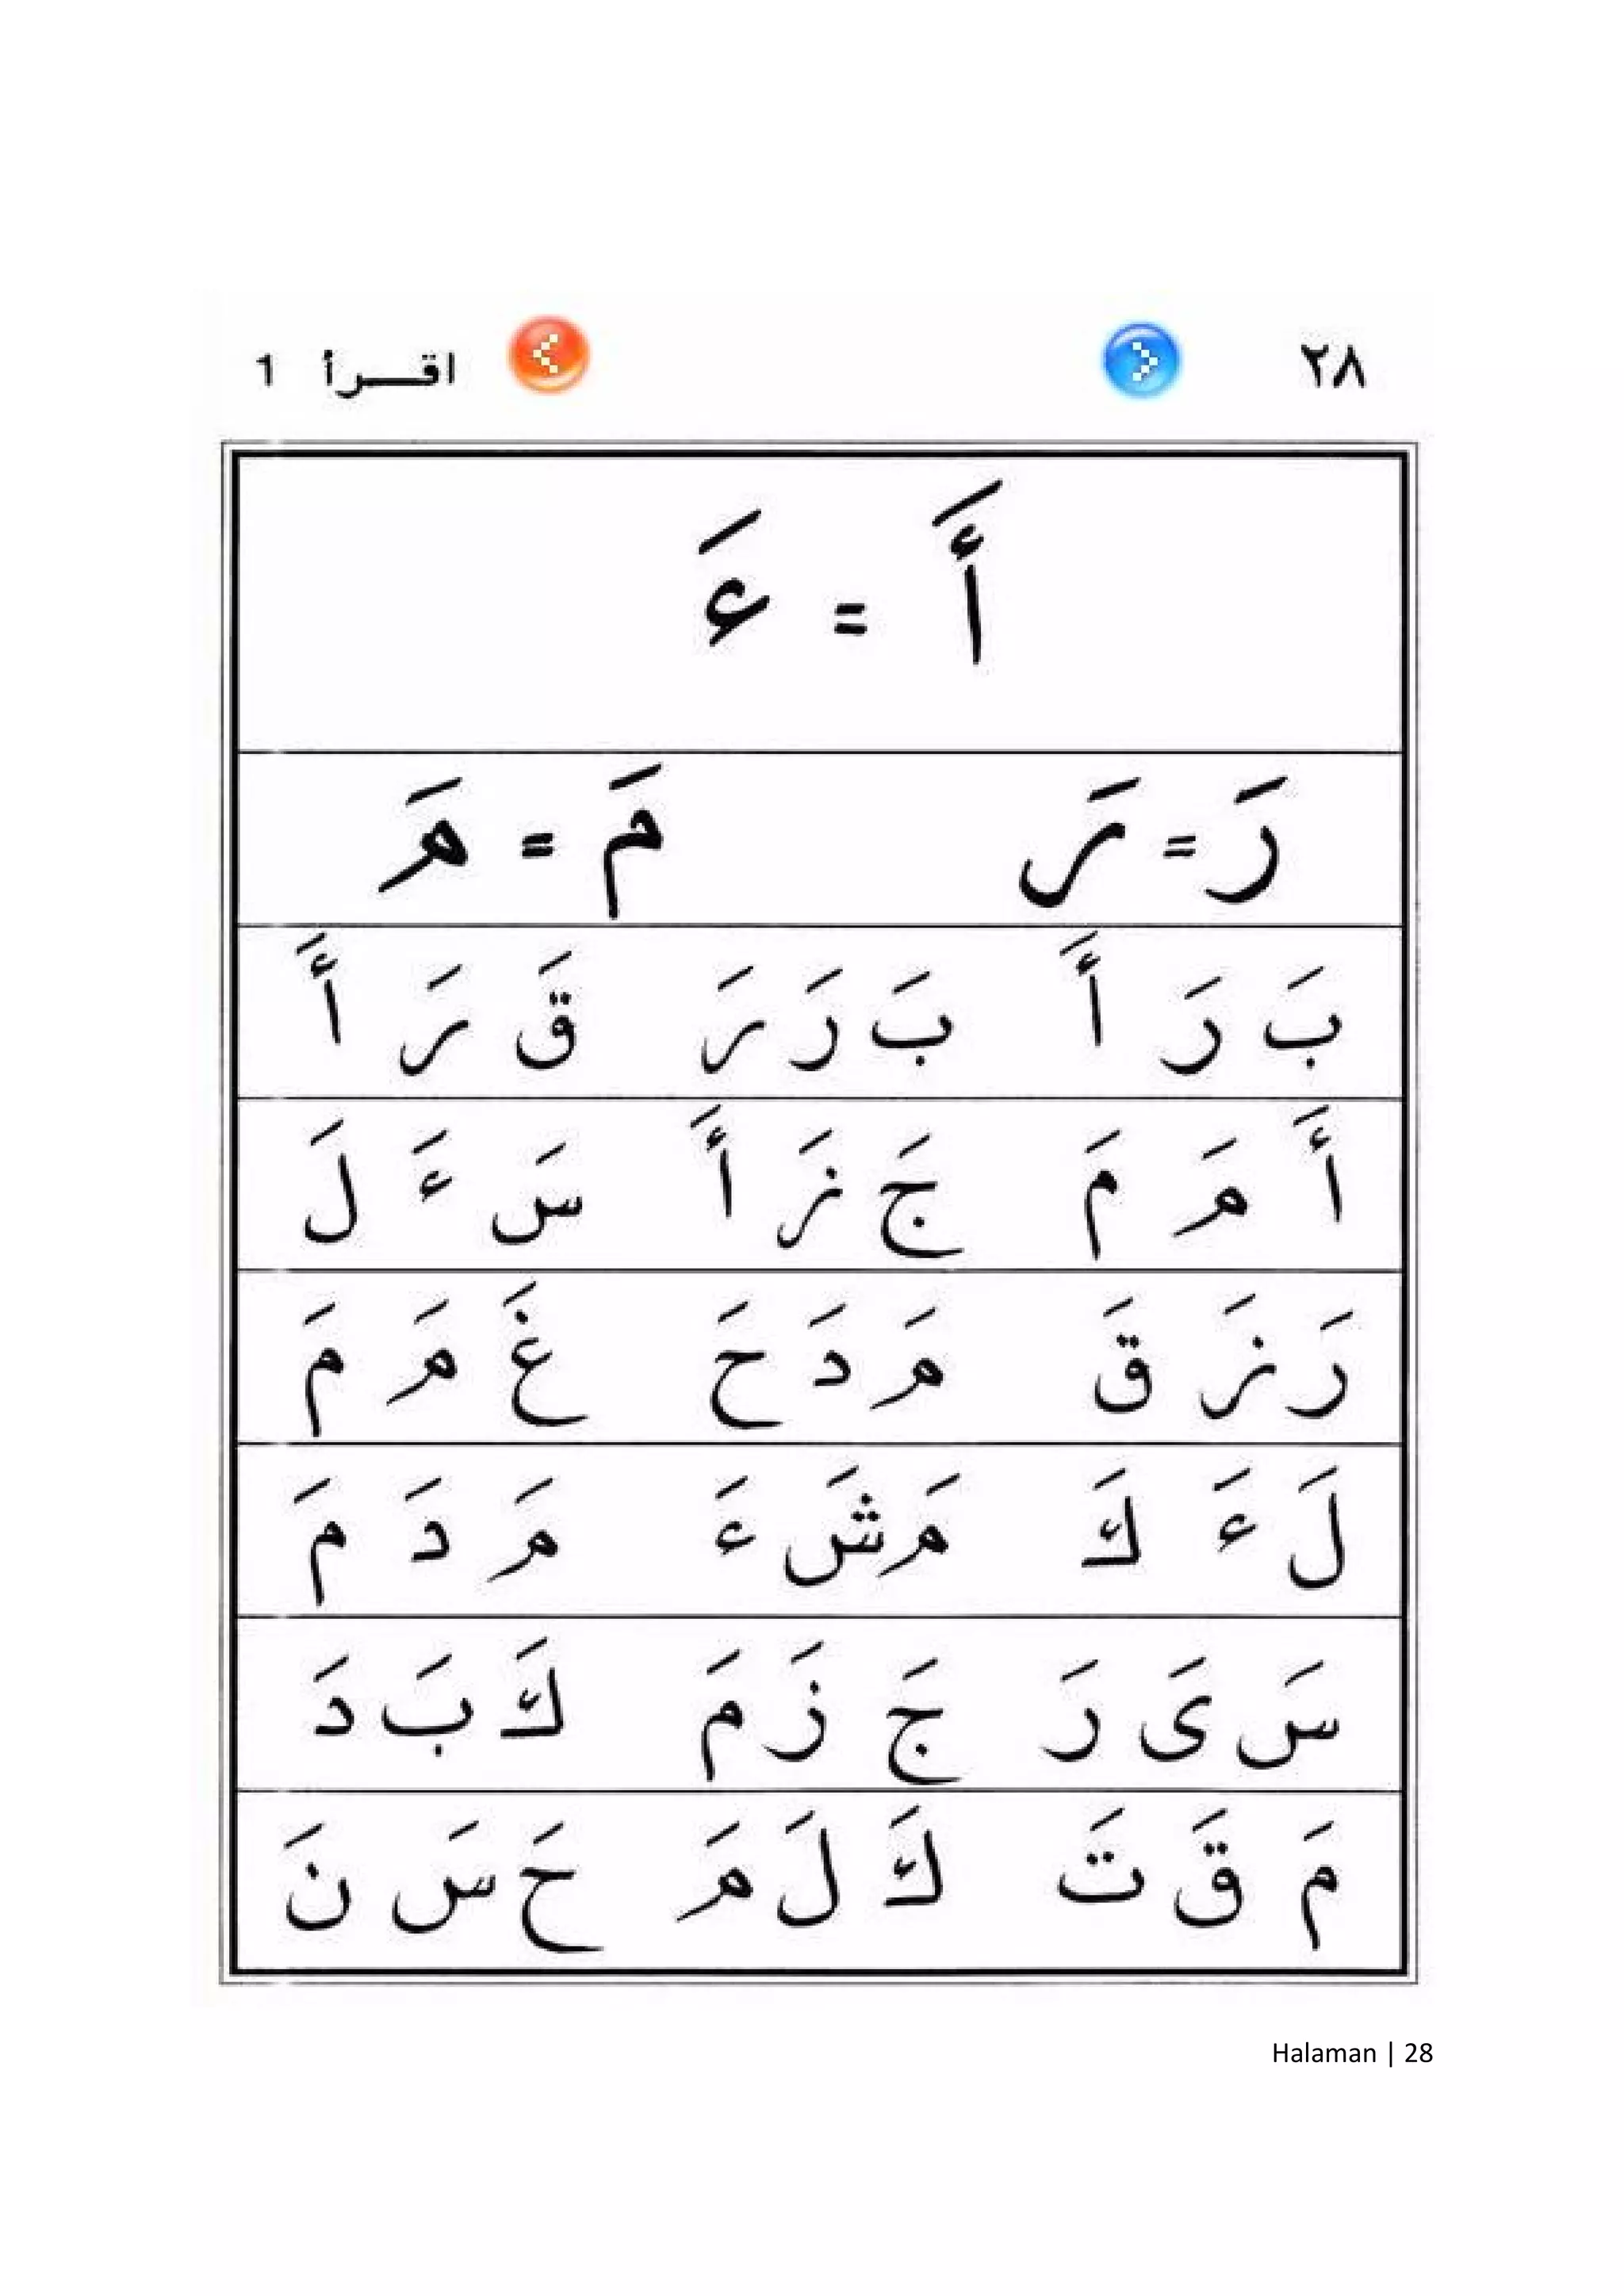 ٢٨ اقـــرأ 1
أَ = ءَ
رَ = رَ مَ = مَ
بَ رَ أَ بَ رَ رَ قَ رَ أَ
أَ مَ مَ جَ زَ أَ سَ ءَ لَ
رَ زَ قَ مَ دَ حَ غَ مَ مَ
لَ ءَ كَ مَ شَ ءَ مَ دَ مَ
سَ ىَ رَ جَ زَ مَ كَ بَ دَ
مَ قَ تَ كَ لَ مَ حَ سَ نَ
Halaman | 28